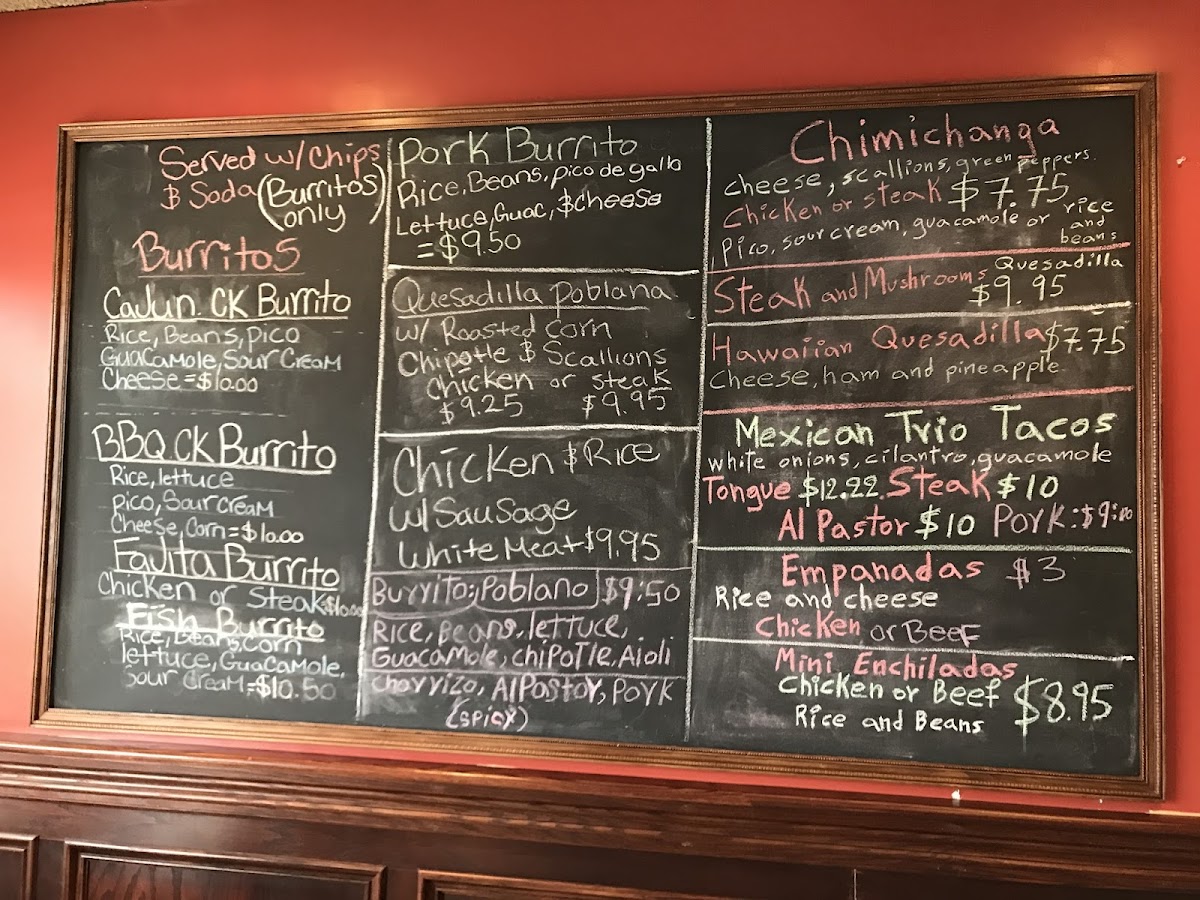 Served w/ Chips
& Soda (Burritos
only)
Burritos
Cajun. CK Burrito
Rice, Beans, pico
Guacamole, Sour Cream
Cheese = $10.00
BBQ.CK Burrito
Rice, lettuce
pico, Sour Cream
Cheese, Corn = $10.00
Fajita Burrito
Chicken or Steak $10.00
Fish Burrito
Rice, Beans, Corn
lettuce, Guacamole,
Sour Cream = $10.50
Pork Burrito
Rice, Beans, pico de gallo
Lettuce, Guac, & cheese
= $9.50
Quesadilla Poblana
w/ Roasted Corn
Chipotle & Scallions
Chicken or Steak
$9.25 $9.95
Chicken & Rice
w/ Sausage
White Meat $9.95
Burrito; Poblano $9:50
Rice, Beans, lettuce,
Guacamole, chipotle, Aioli
Choryizo, Al Pastor, Pork
(spicy)
Chimichanga
cheese, scallions, green peppers.
Chicken or steak $7.75
, Pico, sour cream, guacamole or rice
and
beans
Steak and Mushrooms Quesadilla
$9.95
Hawaiian Quesadilla $7.75
cheese, ham and pineapple.
Mexican Trio Tacos
white onions, cilantro, guacamole
Tongue $12.22 Steak $10
Al Pastor $10 Pork: $9:00
Empanadas $3
Rice and cheese
Chicken or Beef
Mini Enchiladas
Chicken or Beef $8.95
Rice and Beans